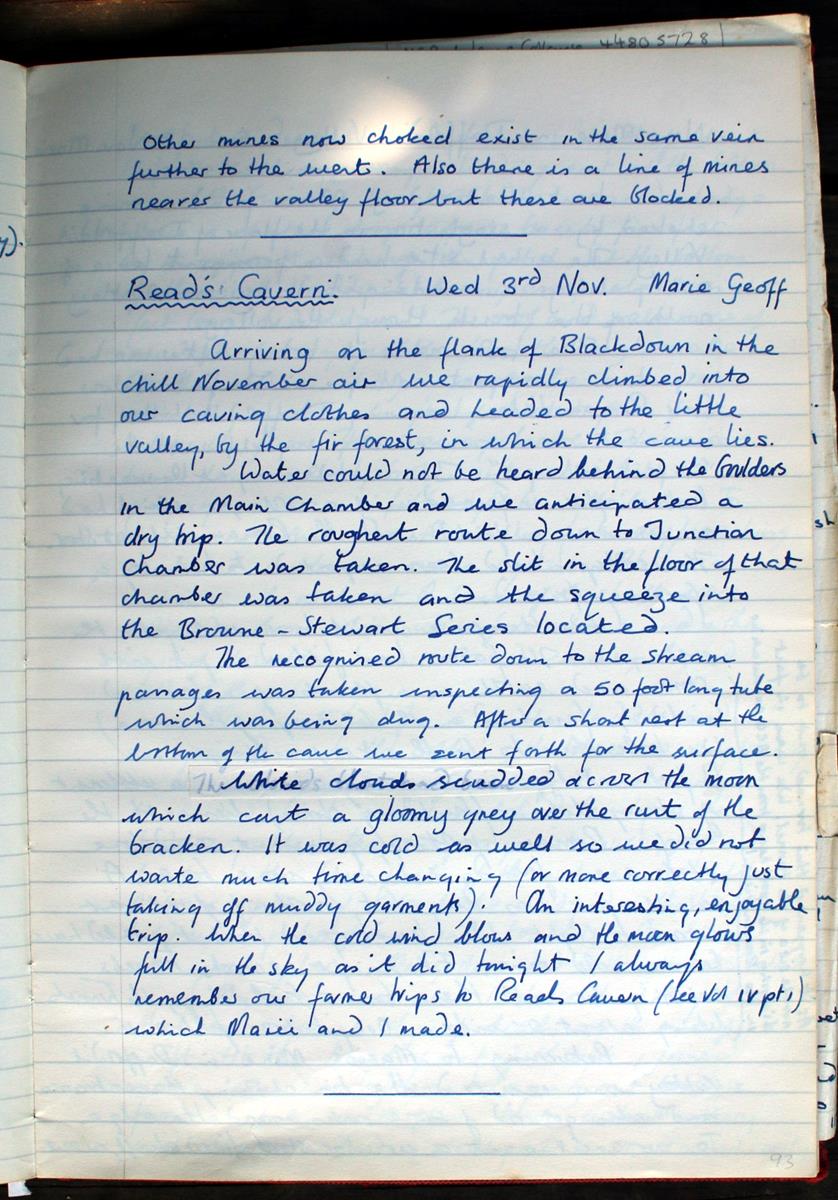 44805728
y).
Other mines now choked exist in the same vein
further to the west. Also there is a line of mines
nearer the valley floor but these are blocked.
Read's Cavern. Wed 3rd Nov. Marie Geoff
Arriving on the flank of Blackdown in the
chill November air we rapidly climbed into
our caving clothes and headed to the little
valley, by the fir forest, in which the cave lies.
Water could not be heard behind the boulders
in the Main Chamber and we anticipated a
dry trip. The roughest route down to Junction
Chamber was taken. The slit in the floor of that
chamber was taken and the squeeze into
the Browne - Stewart Series located.
The recognised route down to the stream
passages was taken inspecting a 50 foot long tube
which was being dug. After a short rest at the
bottom of the cave we sent forth for the surface.
White clouds scudded across the moon
which cast a gloomy grey over the rust of the
bracken. It was cold as well so we did not
waste much time changing (or more correctly just
taking off muddy garments). An interesting, enjoyable
trip. When the cold wind blows and the moon glows
full in the sky as it did tonight I always
remember our former trips to Reads Cavern (see Vol IV pt 1)
which Marie and I made.
93